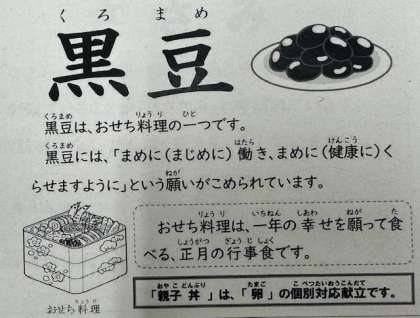 くろまめ
黒豆
くろまめ りょうり ひと
黒豆は、おせち料理の一つです。
くろまめ はたら けんこう
黒豆には、「まめに(まじめに)働き、まめに(健康に)く
ねが
らせますように」という願いがこめられています。
りょうり いちねん しあわ ねが た
おせち料理は、一年の幸せを願って食
しょうがつ ぎょうじしょく
べる、正月の行事食です。
りょうり
おせち料理
おやこどんぶり たまご こべつたいおうこんだて
「親子丼」は、「卵」の個別対応献立です。